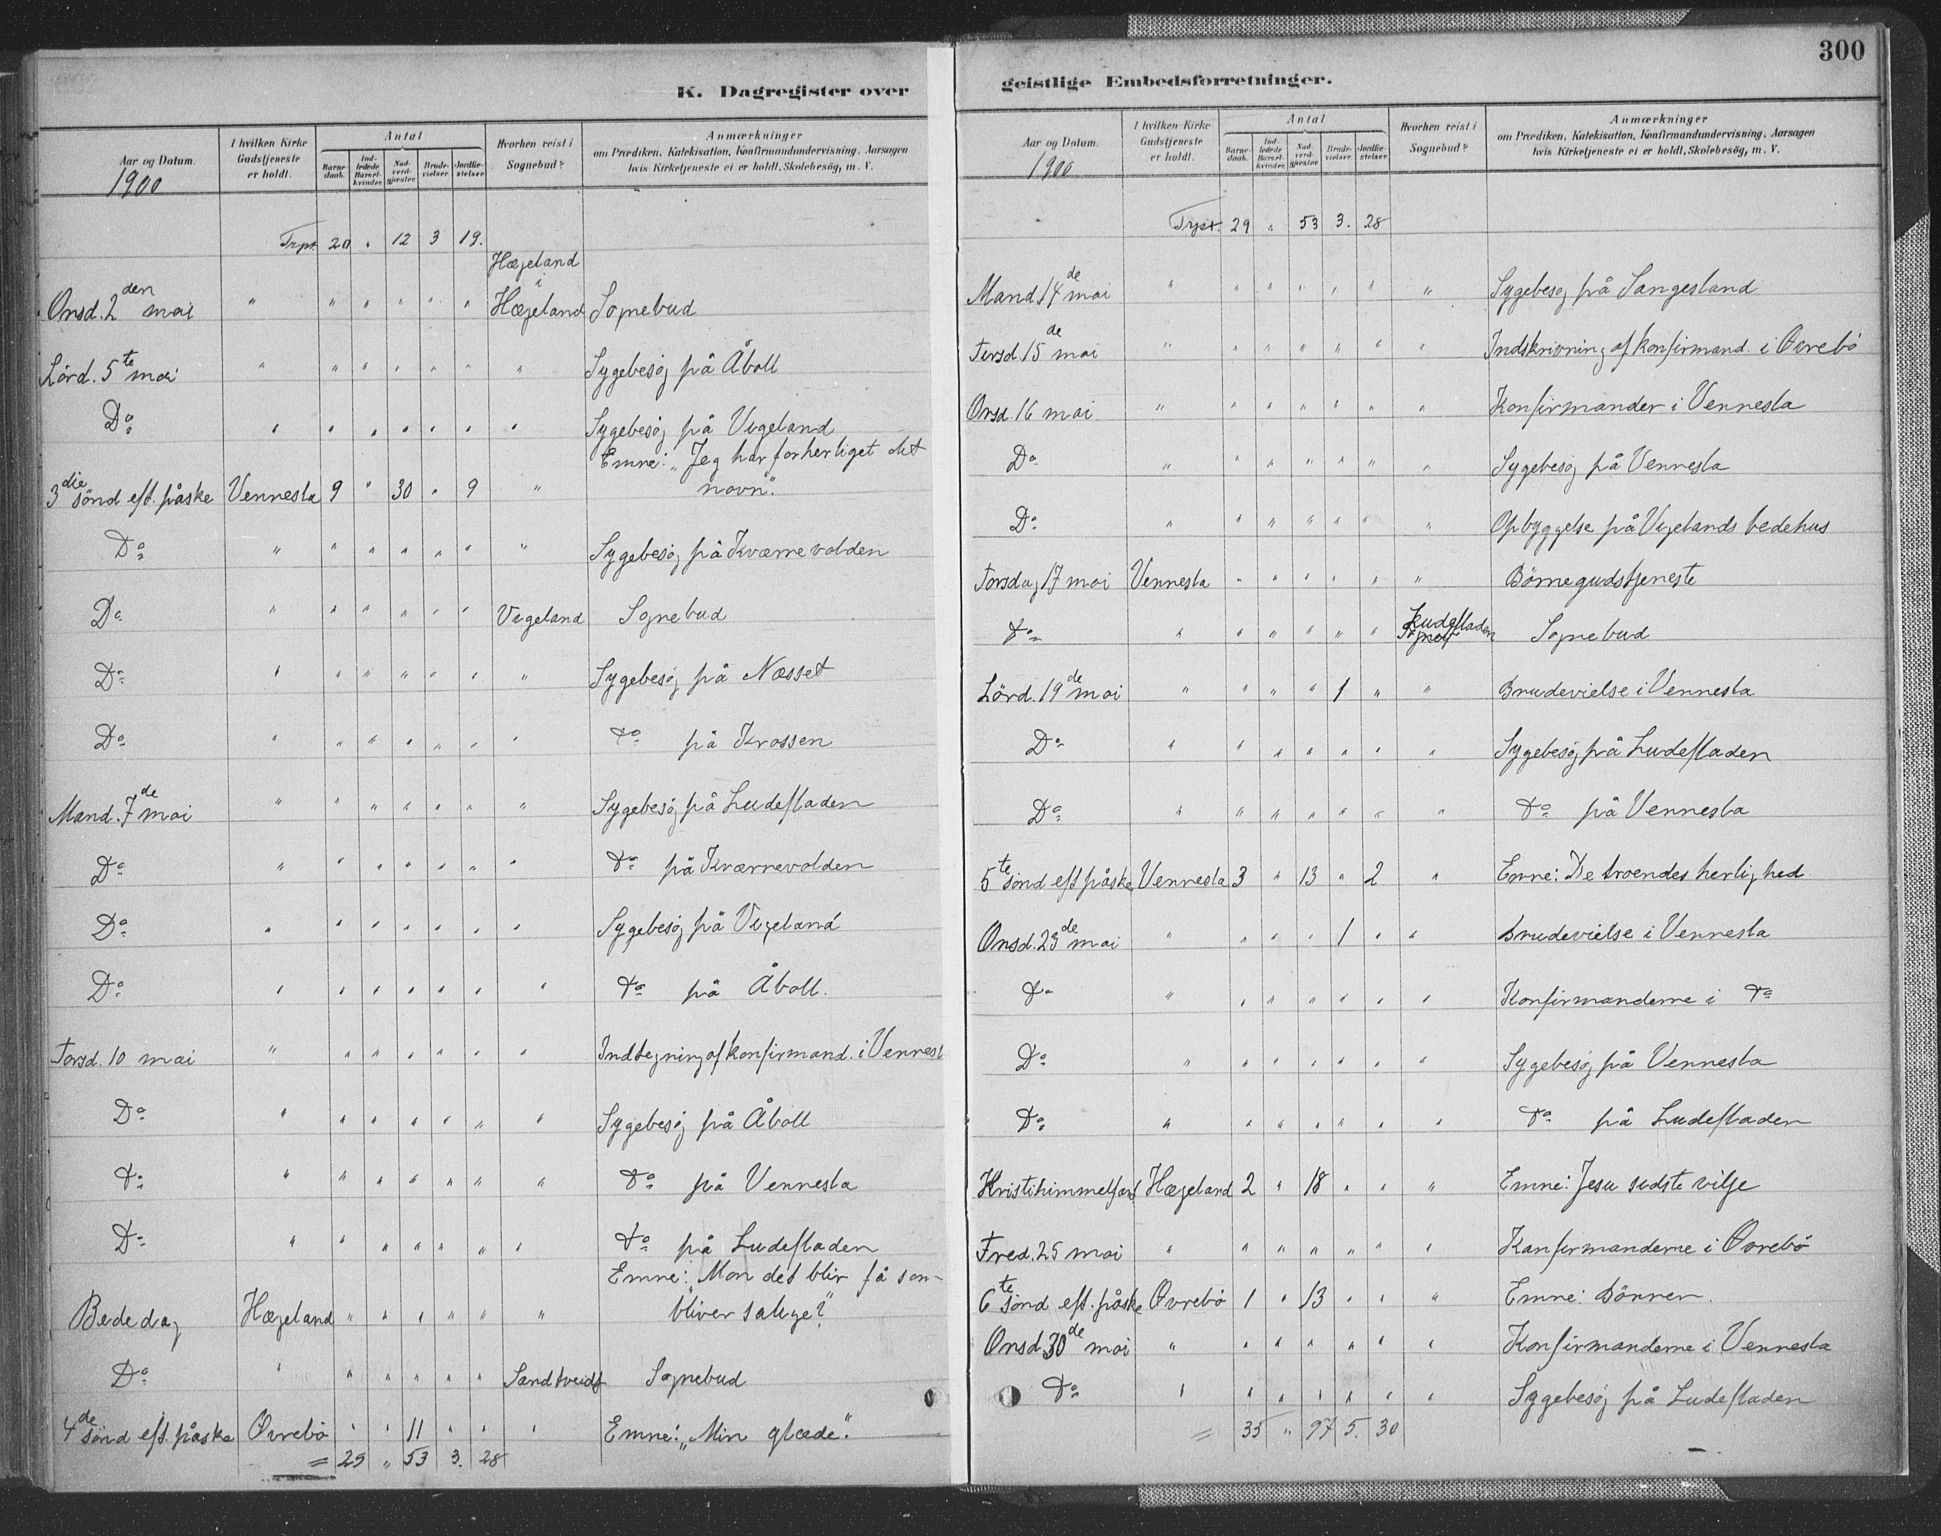 K. Dagregister over
Aar og Datum.
1900
I hvilken Kirke Gudstjeneste er holdt.
Antal
Barnedaab.
Indledede Barselkvinder.
Nadverdgjæster.
Brudevielser.
Jordfæstelser.
Hvorhen reist i Sognebud?
Anmærkninger
om Prædiken, Katekisation, Konfirmandundervisning, Aarsagen
hvis Kirketjeneste ei er holdt, Skolebesög, m. V.
Trpt. 20 " 12 3 19.
Onsd. 2den mai " " " " " " Hægeland i Hægeland Sognebud
Lörd. 5te mai " " " " " " " Sygebesög på Åboll
Do " " " " " " " Sygebesög på Vigeland
Emne: "Jeg har forherliget dit
3die sönd eft. påske Vennesla 9 " 30 " 9 " navn".
Do " " " " " " " Sygebesög på Kværnevolden
Do " " " " " " Vigeland Sognebud
Do " " " " " " " Sygebesög på Næsset
Do " " " " " " " Do på Krossen
Mand. 7de mai " " " " " " " Sygebesög på Ludefladen
Do " " " " " " " Do på Kværnevolden
Do " " " " " " " Sygebesög på Vigeland
Do " " " " " " " Do på Åboll.
Torsd. 10 mai " " " " " " " Indtegning af konfirmand. i Vennesl
Do " " " " " " " Sygebesög på Åboll
Do " " " " " " " Do på Vennesla
Do " " " " " " " Do på Ludefladen
Emne: "Mon det blir få som
Bededag Hægeland " " " " " " bliver salige?"
Do " " " " " " Sandtveidt Sognebud
4de sönd eft. påske Øvrebö " " 11 " " " Emne: "Min glæde".
= 29 " 53 3. 28
geistlige Embedsforretninger.
300
Aar og Datum.
1900
I hvilken Kirke Gudstjeneste er holdt.
Antal
Barnedaab.
Indledede Barselkvinder.
Nadverdgjæster.
Brudevielser.
Jordfæstelser.
Hvorhen reist i Sognebud?
Anmærkninger
om Prædiken, Katekisation, Konfirmandundervisning, Aarsagen
hvis Kirketjeneste ei er holdt, Skolebesög, m. V.
Trpt. 29 " 53 3. 28
Mand. 14de mai " " " " " " " Sygebesög på Sangesland
Tirsd. 15de mai " " " " " " " Indskrivning af konfirmand i Øvrebö
Onsd. 16 mai " " " " " " " Konfirmander i Vennesla
Do " " " " " " " Sygebesög på Vennesla
Do " " " " " " " Opbyggelse på Vigelands bedehus
Torsdag 17 mai Vennesla " " " " " " Börnegudstjeneste
Do " " " " " " Ludefladen Sognebud
Lörd. 19de mai " " " " 1 " " Brudevielse i Vennesla
Do " " " " " " " Sygebesög på Ludefladen
Do " " " " " " " Do på Vennesla
5te sönd eft påske Vennesla 3 " 13 " 2 " Emne: De troendes herlighed
Onsd. 23de mai " " " " 1 " " Brudevielse i Vennesla
Do " " " " " " " Konfirmanderne i Do
Do " " " " " " " Sygebesög på Vennesla
Do " " " " " " " Do på Ludefladen
Kristihimmelfart Hægeland 2 " 18 " " " Emne: Jesu sidste vilje
Fred. 25 mai " " " " " " " Konfirmanderne i Øvrebö
6te sönd eft. påske Øvrebö 1 " 13 " " " Emne: Bönnen.
Onsd. 30de mai " " " " " " " Konfirmanderne i Vennesla
Do " " " " " " " Sygebesög på Ludefladen
= 35 " 97 5. 30